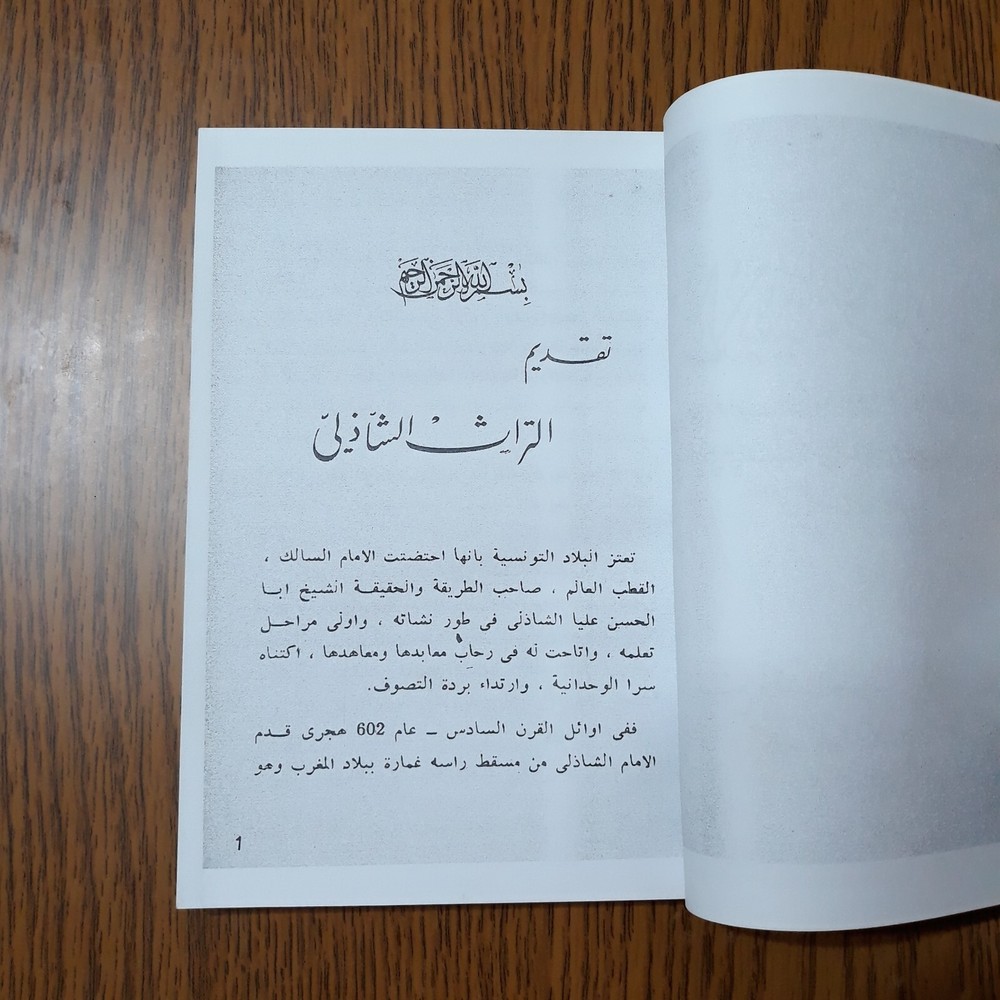 بسم الله الرحمن الرحيم
تقديم
التراث الشاذليّ
تعتز البلاد التونسية بانها احتضنت الامام السالك ،
القطب العالم ، صاحب الطريقة والحقيقة الشيخ ابا
الحسن عليا الشاذلى فى طور نشاته ، واولى مراحل
تعلمه ، واتاحت له فى رحاب معابدها ومعاهدها ، اكتناه
سرا الوحدانية ، وارتداء بردة التصوف.
ففى اوائل القرن السادس – عام 602 هجرى قدم
الامام الشاذلى من مسقط راسه غمارة ببلاد المغرب وهو
1